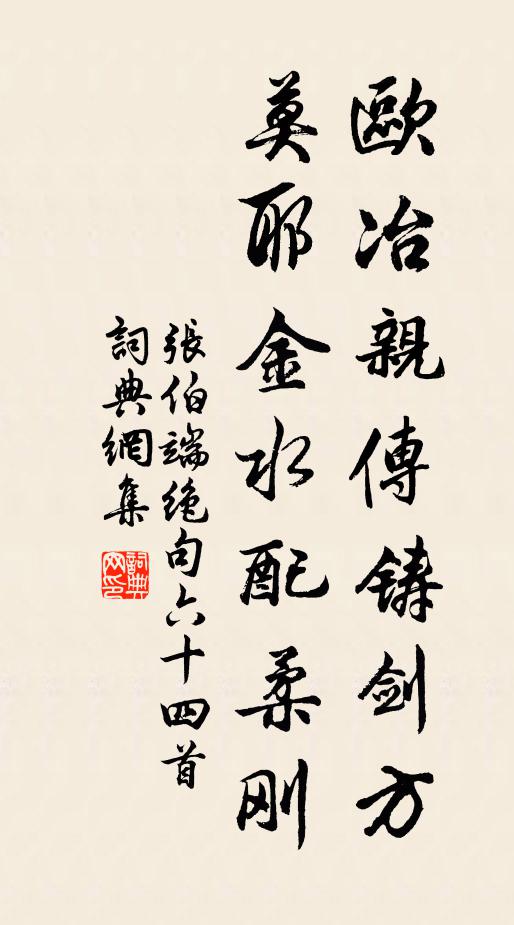 歐冶親傳鑄劍方
莫耶金水配柔剛
張伯端絶句六十四首
詞典網集
詞典
网印